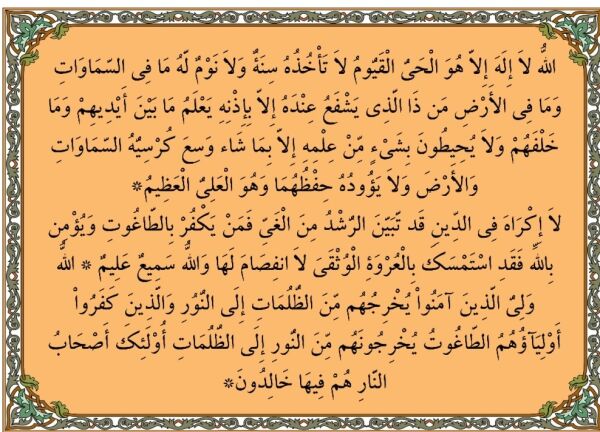 اللّهُ لاَ إِلَهَ إِلاَّ هُوَ الْحَيُّ الْقَيُّومُ لاَ تَأْخُذُهُ سِنَةٌ وَلاَ نَوْمٌ لَّهُ مَا فِی السَّمَاوَاتِ
وَمَا فِی الأَرْضِ مَن ذَا الَّذِی يَشْفَعُ عِنْدَهُ إِلاَّ بِإِذْنِهِ يَعْلَمُ مَا بَيْنَ أَيْدِيهِمْ وَمَا
خَلْفَهُمْ وَلاَ يُحِيطُونَ بِشَیْءٍ مِّنْ عِلْمِهِ إِلاَّ بِمَا شَاء وَسِعَ كُرْسِيُّهُ السَّمَاوَاتِ
وَالأَرْضَ وَلاَ يَؤُودُهُ حِفْظُهُمَا وَهُوَ الْعَلِیُّ الْعَظِيمُ*
لاَ إِكْرَاهَ فِی الدِّينِ قَد تَّبَيَّنَ الرُّشْدُ مِنَ الْغَیِّ فَمَنْ يَكْفُرْ بِالطَّاغُوتِ وَيُؤْمِن
بِاللّهِ فَقَدِ اسْتَمْسَكَ بِالْعُرْوَةِ الْوُثْقَیَ لاَ انفِصَامَ لَهَا وَاللّهُ سَمِيعٌ عَلِيمٌ * اللّهُ
وَلِیُّ الَّذِينَ آمَنُواْ يُخْرِجُهُم مِّنَ الظُّلُمَاتِ إِلَی النُّوُرِ وَالَّذِينَ كَفَرُواْ
أَوْلِيَآؤُهُمُ الطَّاغُوتُ يُخْرِجُونَهُم مِّنَ النُّورِ إِلَی الظُّلُمَاتِ أُوْلَئِكَ أَصْحَابُ
النَّارِ هُمْ فِيهَا خَالِدُونَ*